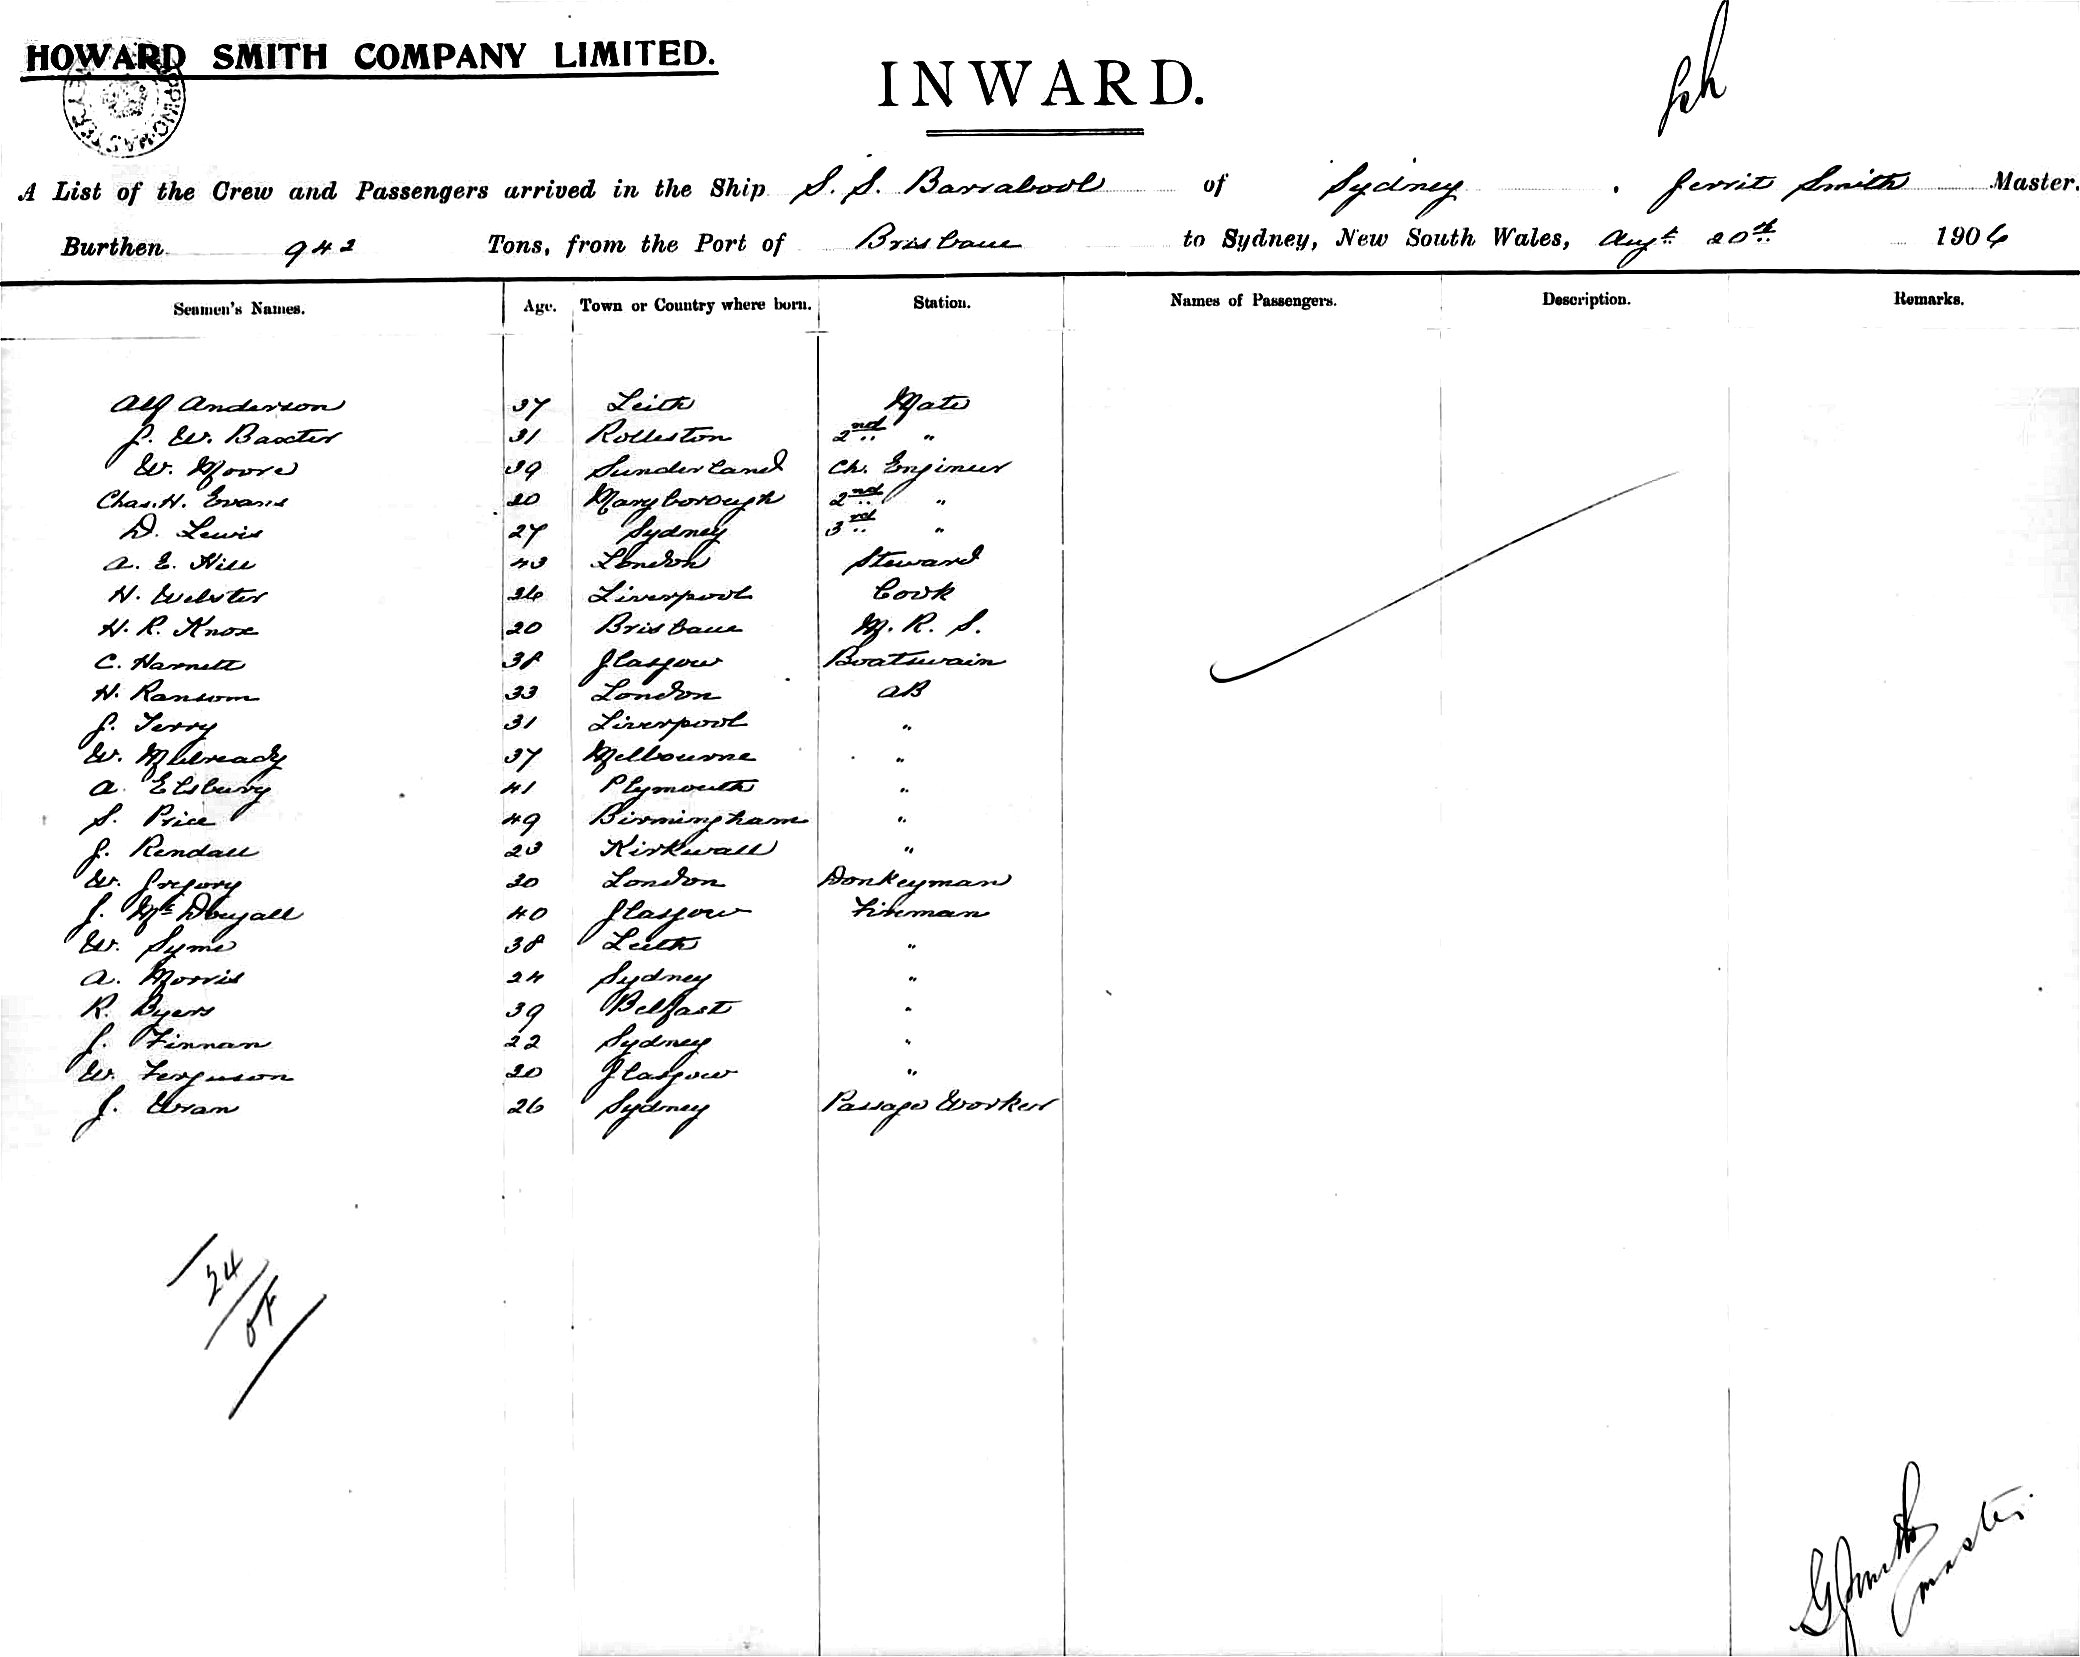 HOWARD SMITH COMPANY LIMITED.
INWARD.
A List of the Crew and Passengers arrived in the Ship S. S. Barrabool of Sydney. Gerrit Smith Master.
Burthen 942 Tons, from the Port of Brisbane to Sydney, New South Wales, Augt. 20th 1906
Seamen's Names. Age. Town or Country where born. Station. Names of Passengers. Description. Remarks.
Alf Anderson 37 Leith Mate
J. W. Baxter 31 Rolleston 2nd "
W. Moore 39 Sunderland Ch. Engineer
Chas. H. Evans 20 Maryborough 2nd "
D. Lewis 27 Sydney 3rd "
A. E. Hill 43 London Steward
H. Webster 26 Liverpool Cook
H. R. Knox 20 Brisbane M. R. S.
C. Harnett 38 Glasgow Boatswain
H. Ransom 33 London AB
J. Terry 31 Liverpool "
W. McCready 37 Melbourne "
A. Elsbury 41 Plymouth "
S. Price 49 Birmingham "
J. Rendall 23 Kirkwall "
W. Gregory 30 London Donkeyman
J. McDougall 40 Glasgow Fireman
W. Syme 38 Leith "
A. Morris 24 Sydney "
R. Byers 39 Belfast "
J. Finnan 22 Sydney "
W. Ferguson 20 Glasgow "
J. Wran 26 Sydney Passage Worker
24
G Smith
Master